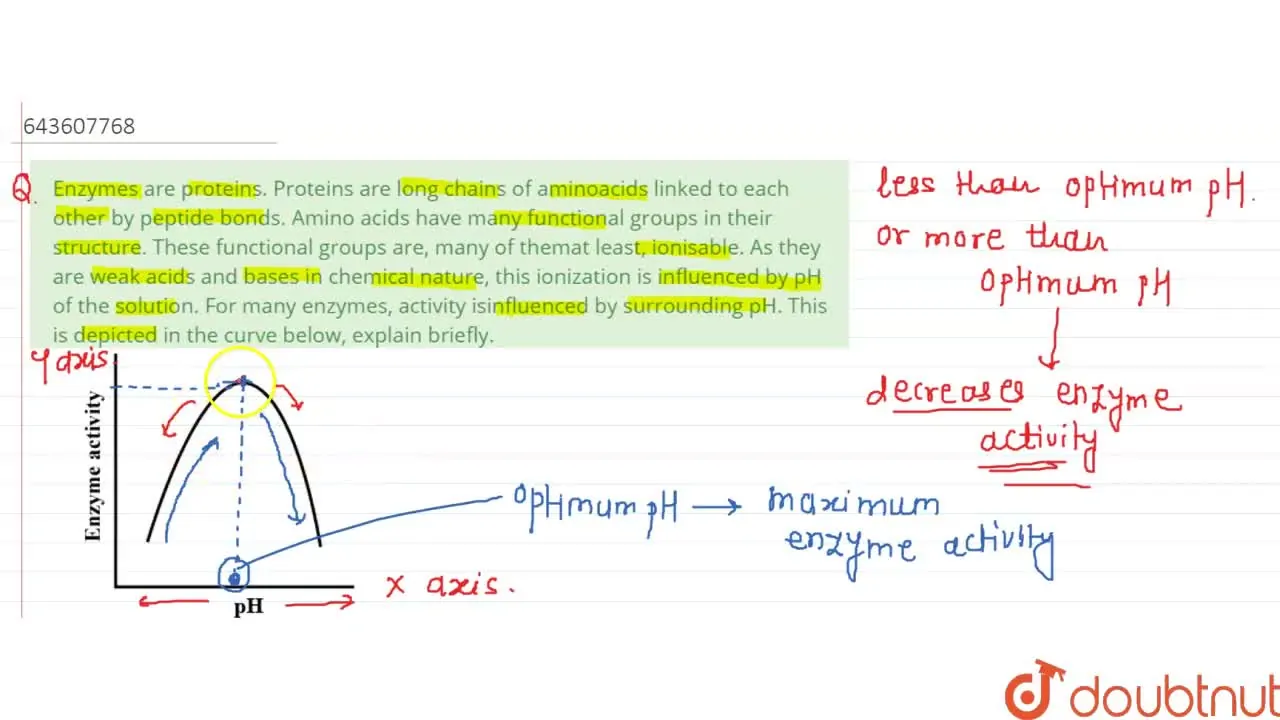 643607768
Q. Enzymes are proteins. Proteins are long chains of aminoacids linked to each
other by peptide bonds. Amino acids have many functional groups in their
structure. These functional groups are, many of themat least, ionisable. As they
are weak acids and bases in chemical nature, this ionization is influenced by pH
of the solution. For many enzymes, activity isinfluenced by surrounding pH. This
is depicted in the curve below, explain briefly.
less than optimum pH.
or more than
optimum pH
decreases enzyme
activity
Y axis.
Enzyme activity
optimum pH → maximum
enzyme activity
X axis.
pH
doubtnut